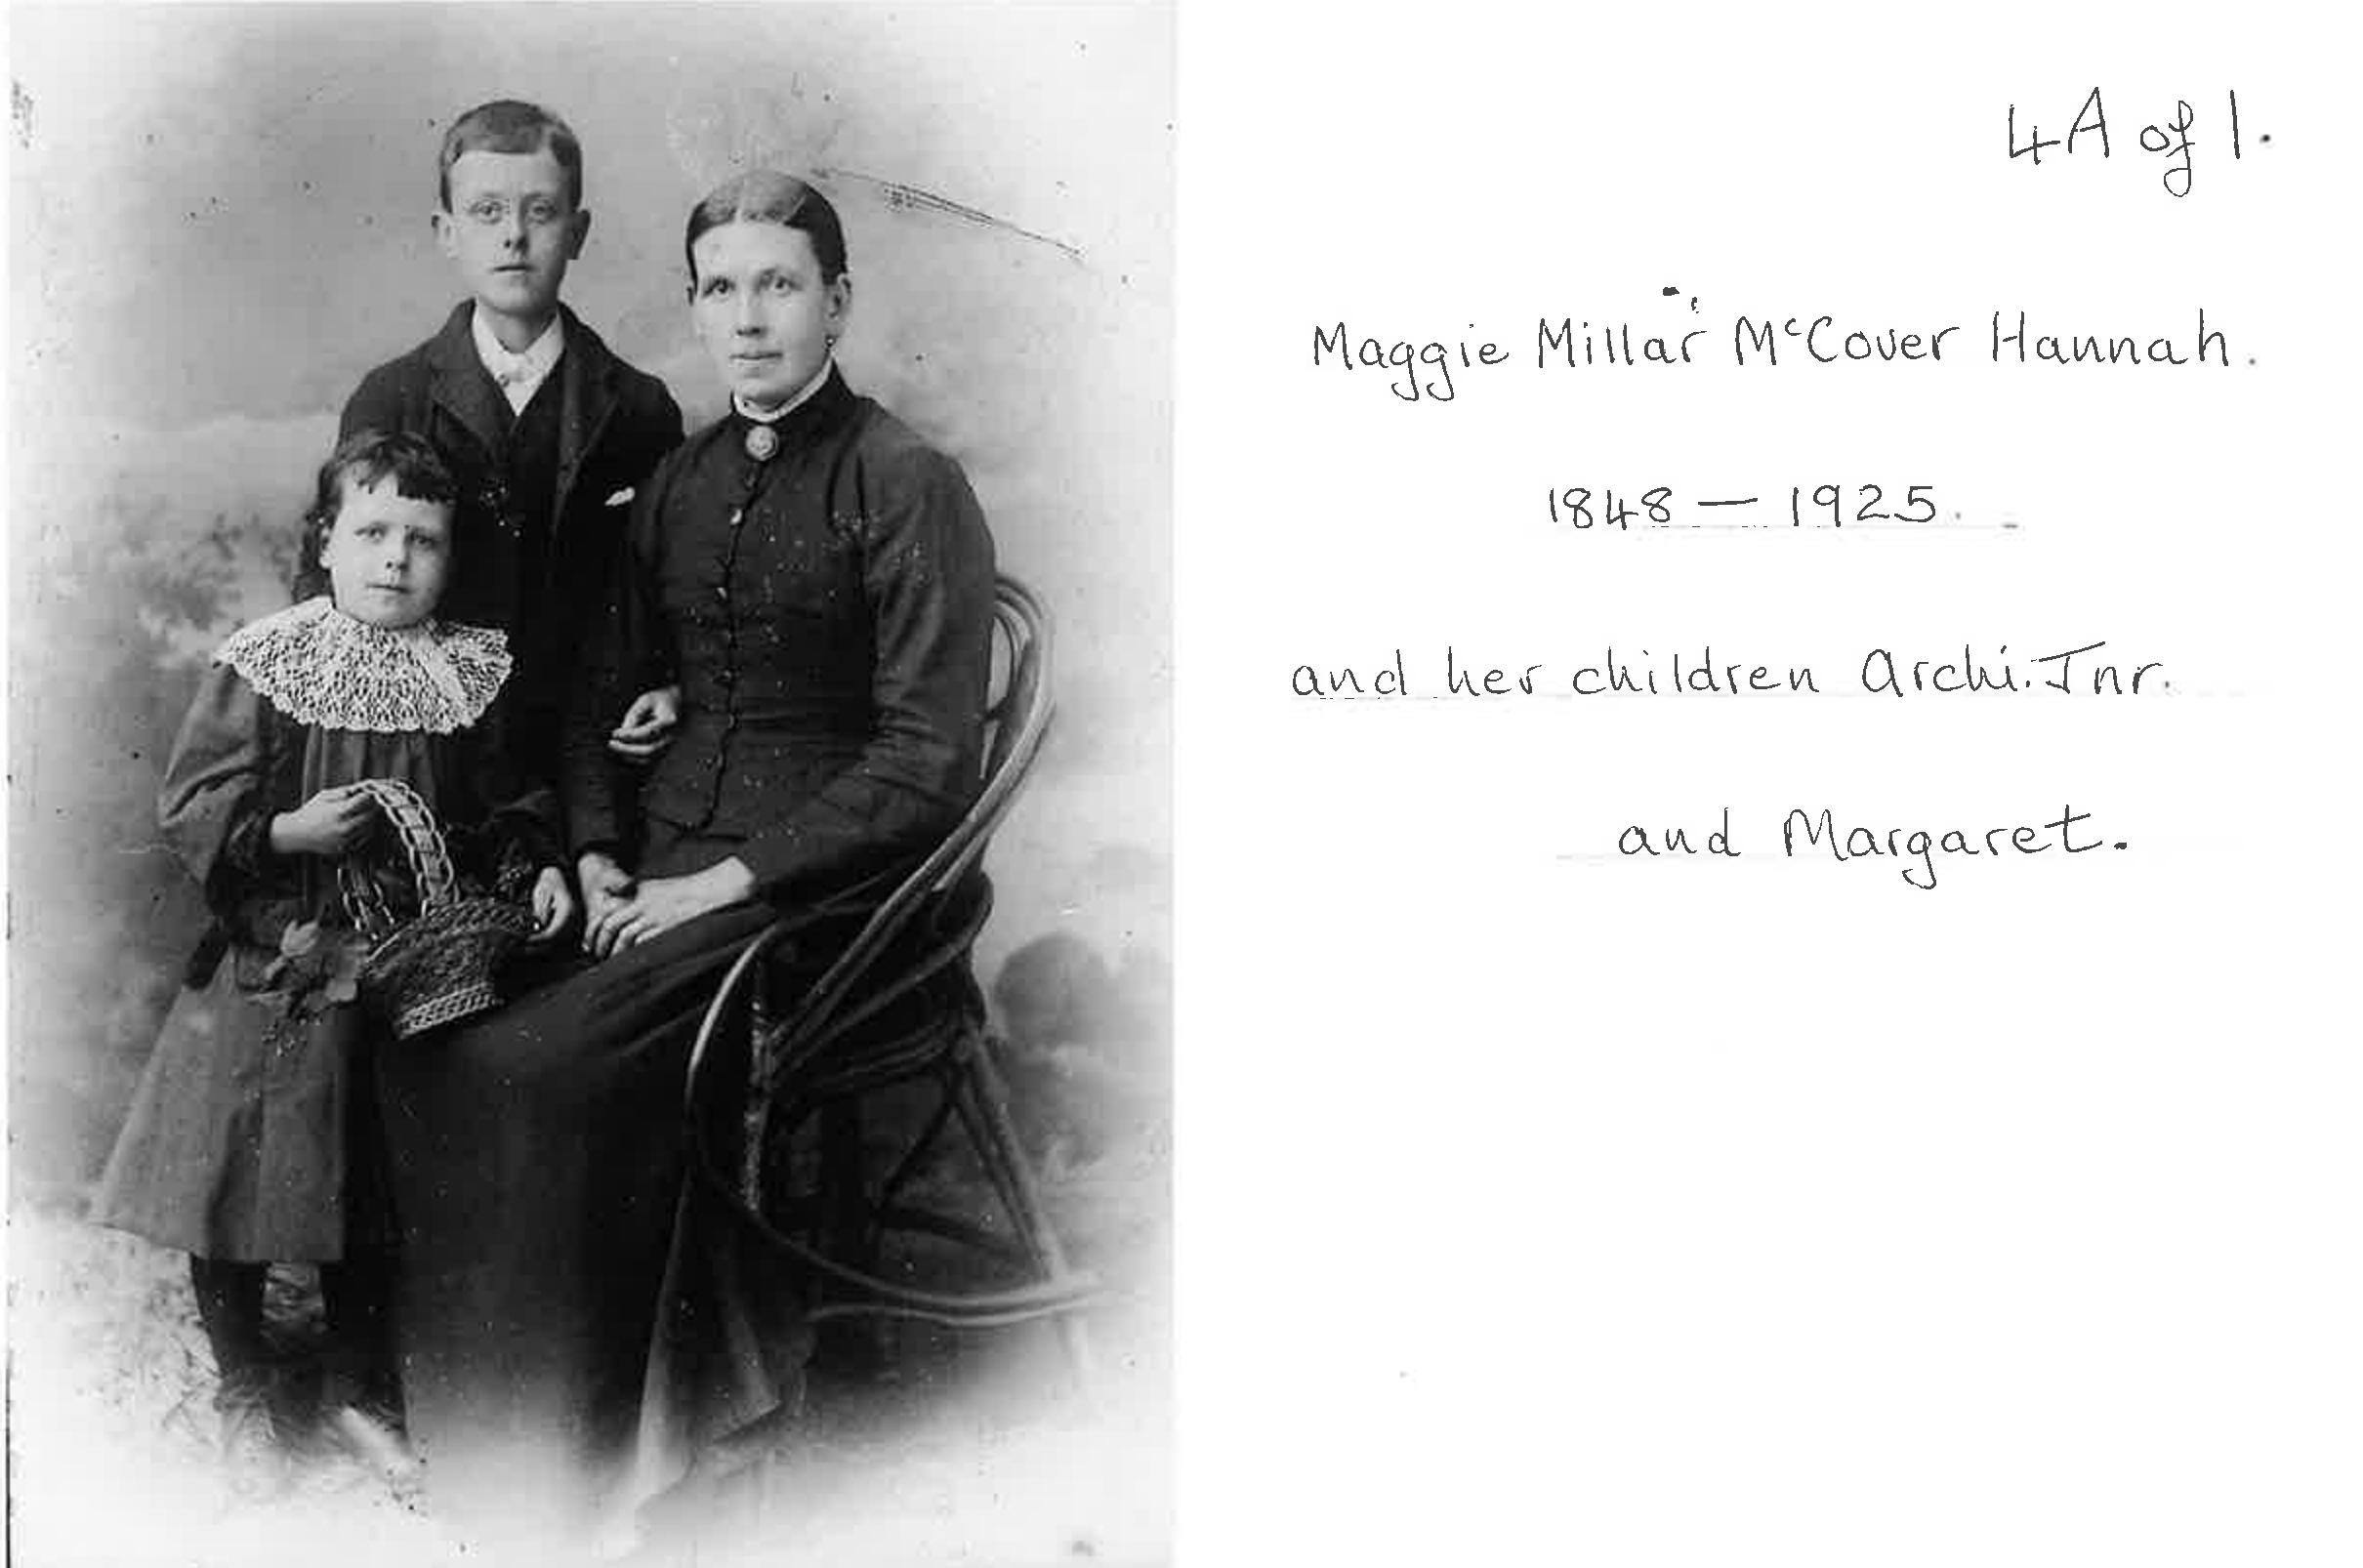 4A of 1.
Maggie Millar McCover Hannah.
1848 — 1925.
and her children Archi. Jnr.
and Margaret.